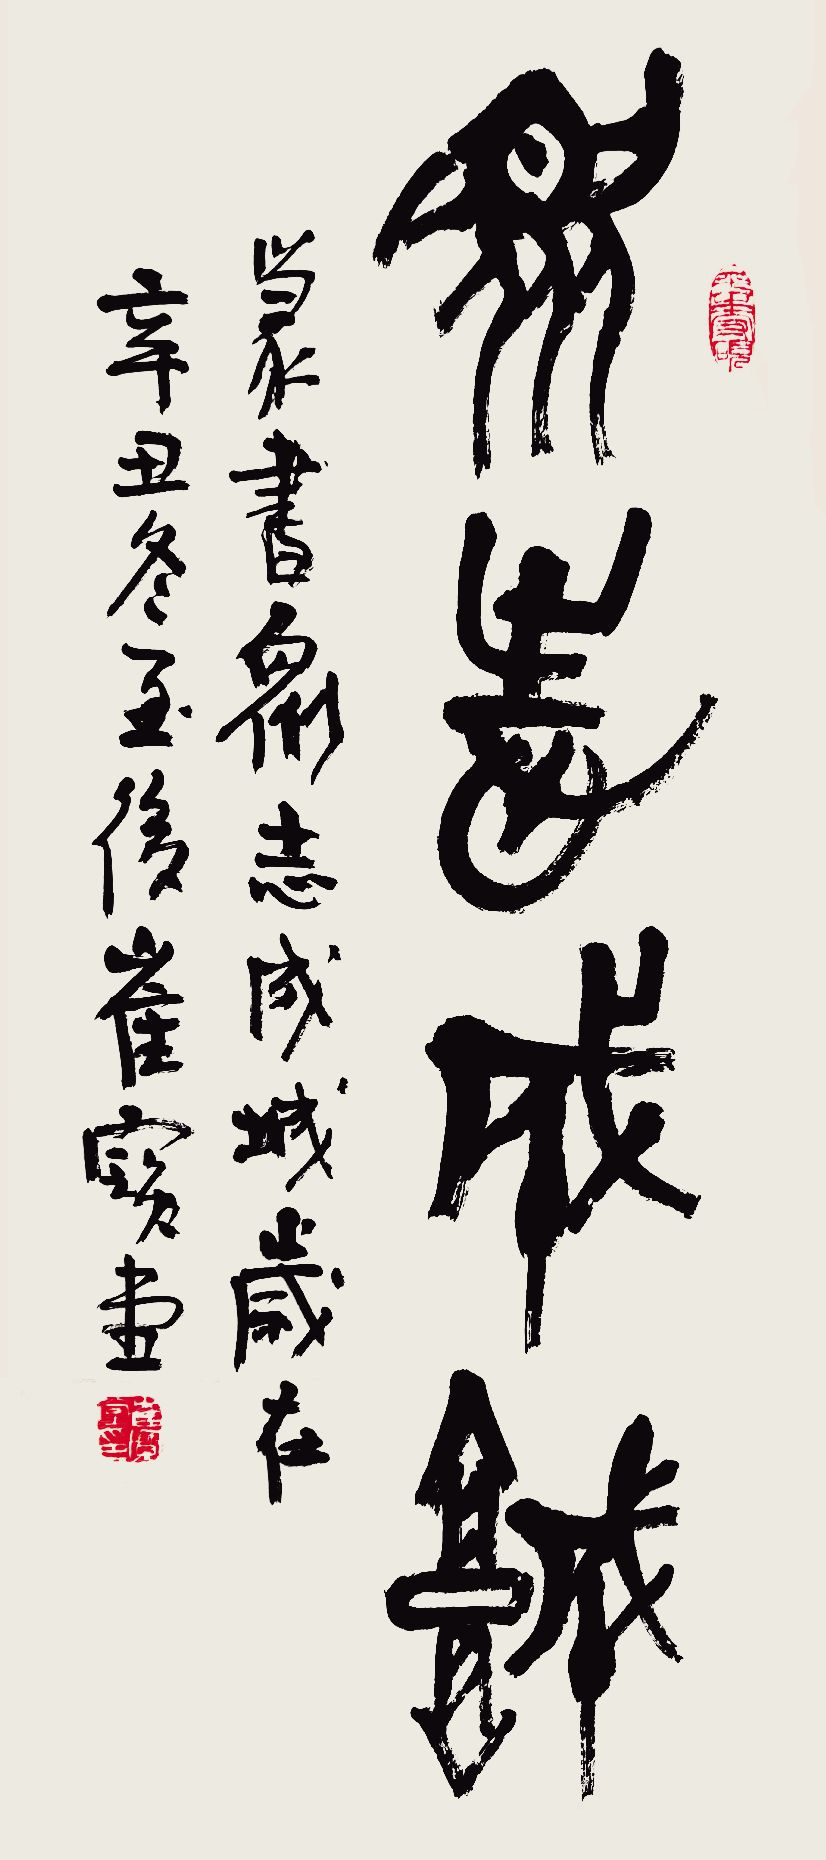 眾志成城
篆書眾志成城歲在
辛丑冬至後崔寶堂